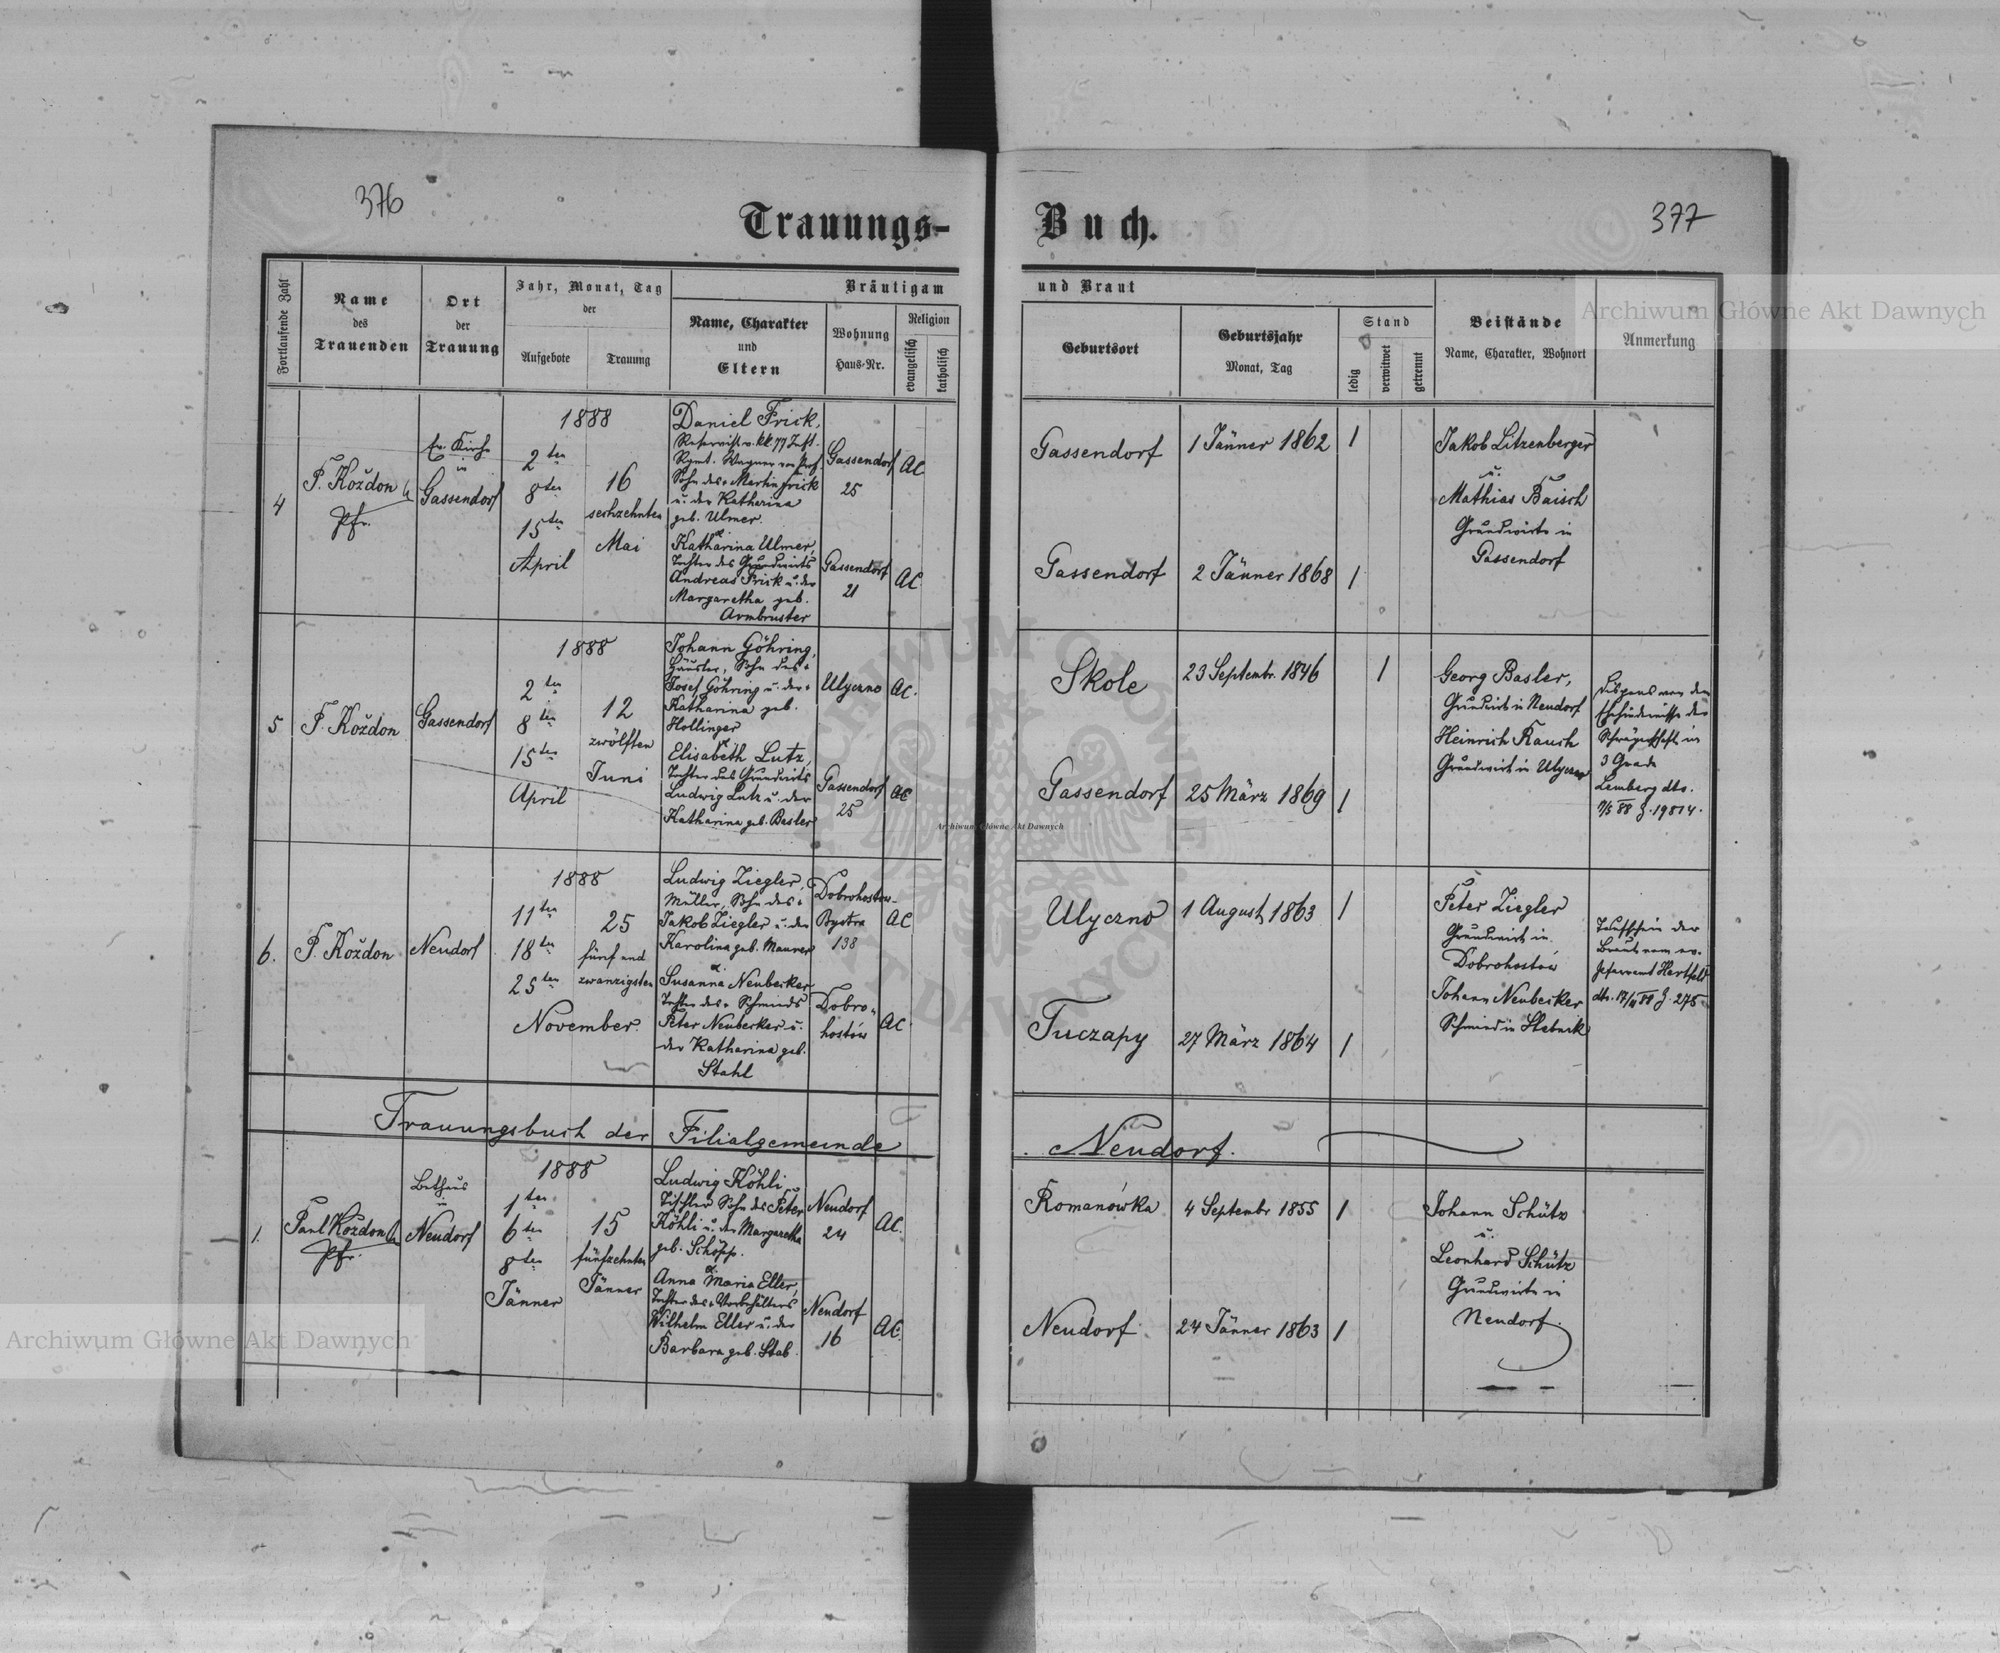 376
377
Trauungs-
Buch.
Fortlaufende Zahl
Name
des
Trauenden
Ort
der
Trauung
Jahr, Monat, Tag
der
Aufgebote
Trauung
Bräutigam
Name, Charakter
und
Eltern
Wohnung
Haus-Nr.
Religion
evangelisch
katholisch
und Braut
Geburtsort
Geburtsjahr
Monat, Tag
Stand
ledig
verwitwet
getrennt
Beistände
Name, Charakter, Wohnort
Anmerkung
4
P. Koždon
Pfr.
Ev. Kirche
in
Gassendorf
1888
2ten
8ten
15ten
April
16
sechzehnten
Mai
Daniel Frick,
Reservist v. kk. 77 Inft.
Rgmt. Wagner von Prof.
Sohn des + Martin Frick
u. der Katharina
geb. Ulmer.
&
Katharina Ulmer,
Tochter des Grundwirts
Andreas Frick u. der
Margaretha geb.
Armbruster
Gassendorf
25
AC
Gassendorf
21
AC
Gassendorf
1 Jänner 1862
1
Gassendorf
2 Jänner 1868
1
Jakob Litzenberger
u.
Mathias Baisch
Grundwirte in
Gassendorf
5
P. Koždon
Gassendorf
1888
2ten
8ten
15ten
April
12
zwölften
Juni
Johann Göhring,
Häusler, Sohn des +
Josef Göhring u. der +
Katharina geb.
Hollinger
&
Elisabeth Lutz,
Tochter des Grundwirts
Ludwig Lutz u. der
Katharina geb. Basler
Ulyczno
AC.
Gassendorf
25
AC
Skole
23 Septembr. 1846
1
Gassendorf
25 März 1869
1
Georg Basler,
Grundwirt in Neudorf
Heinrich Rauch
Grundwirt in Ulyczno
Dispens von dem
Ehehindernisse der
Schwägerschaft im
3 Grade
Lemberg dto.
Z. 19814.
6.
P. Koždon
Neudorf
1888
11ten
18ten
25ten
November.
25
fünf und
zwanzigsten
Ludwig Ziegler,
Müller, Sohn des +
Jakob Ziegler u. der
Karolina geb. Maurer
&
Susanna Neubecker
Tochter des + Schmieds
Peter Neubecker u.
der Katharina geb.
Stahl
Dobrohostow-
Bystra
138
AC
Dobro-
hostów
AC.
Ulyczno
1 August 1863
1
Tuczapy
27 März 1864
1
Peter Ziegler
Grundwirt in
Dobrohostów
Johann Neubecker
Schmied in Stebnik
Taufschein der
Braut vom ev.
Pfarramt Hartfeld
dto. 17/11 88 Z. 275
Trauungsbuch der Filialgemeinde
Neudorf.
1.
Paul Koždon
Pfr.
Bethaus
in
Neudorf
1888
1ten
6ten
8ten
Jänner
15
fünfzehnten
Jänner
Ludwig Köhli
Tischler Sohn des Peter
Köhli u. der Margaretha
geb. Schöpp.
&
Anna Maria Eller,
Tochter des + Vorbehälters
Wilhelm Eller u. der
Barbara geb. Stab.
Neudorf
24
AC.
Neudorf
16
AC.
Romanówka
4 Septembr 1855
1
Neudorf.
24 Jänner 1863
1
Johann Schütz
u.
Leonhard Schütz
Grundwirte in
Neudorf.
Archiwum Główne Akt Dawnych
Archiwum Główne Akt Dawnych
Archiwum Główne Akt Dawnych
ARCHIWUM GŁÓWNE AKT DAWNYCH